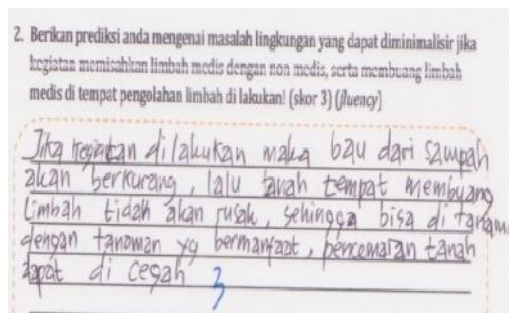 2. Berikan prediksi anda mengenai masalah lingkungan yang dapat diminimalisir jika
kegiatan memisahkan limbah medis dengan non medis, serta membuang limbah
medis di tempat pengolahan limbah di lakukan! (skor 3) (fluency)
Jika kegiatan dilakukan maka bau dari sampah
akan berkurang, lalu tanah tempat membuang
Limbah tidak akan rusak, sehingga bisa di tanam
dengan tanaman yg bermanfaat, pencemaran tanah
dapat di cegah 3